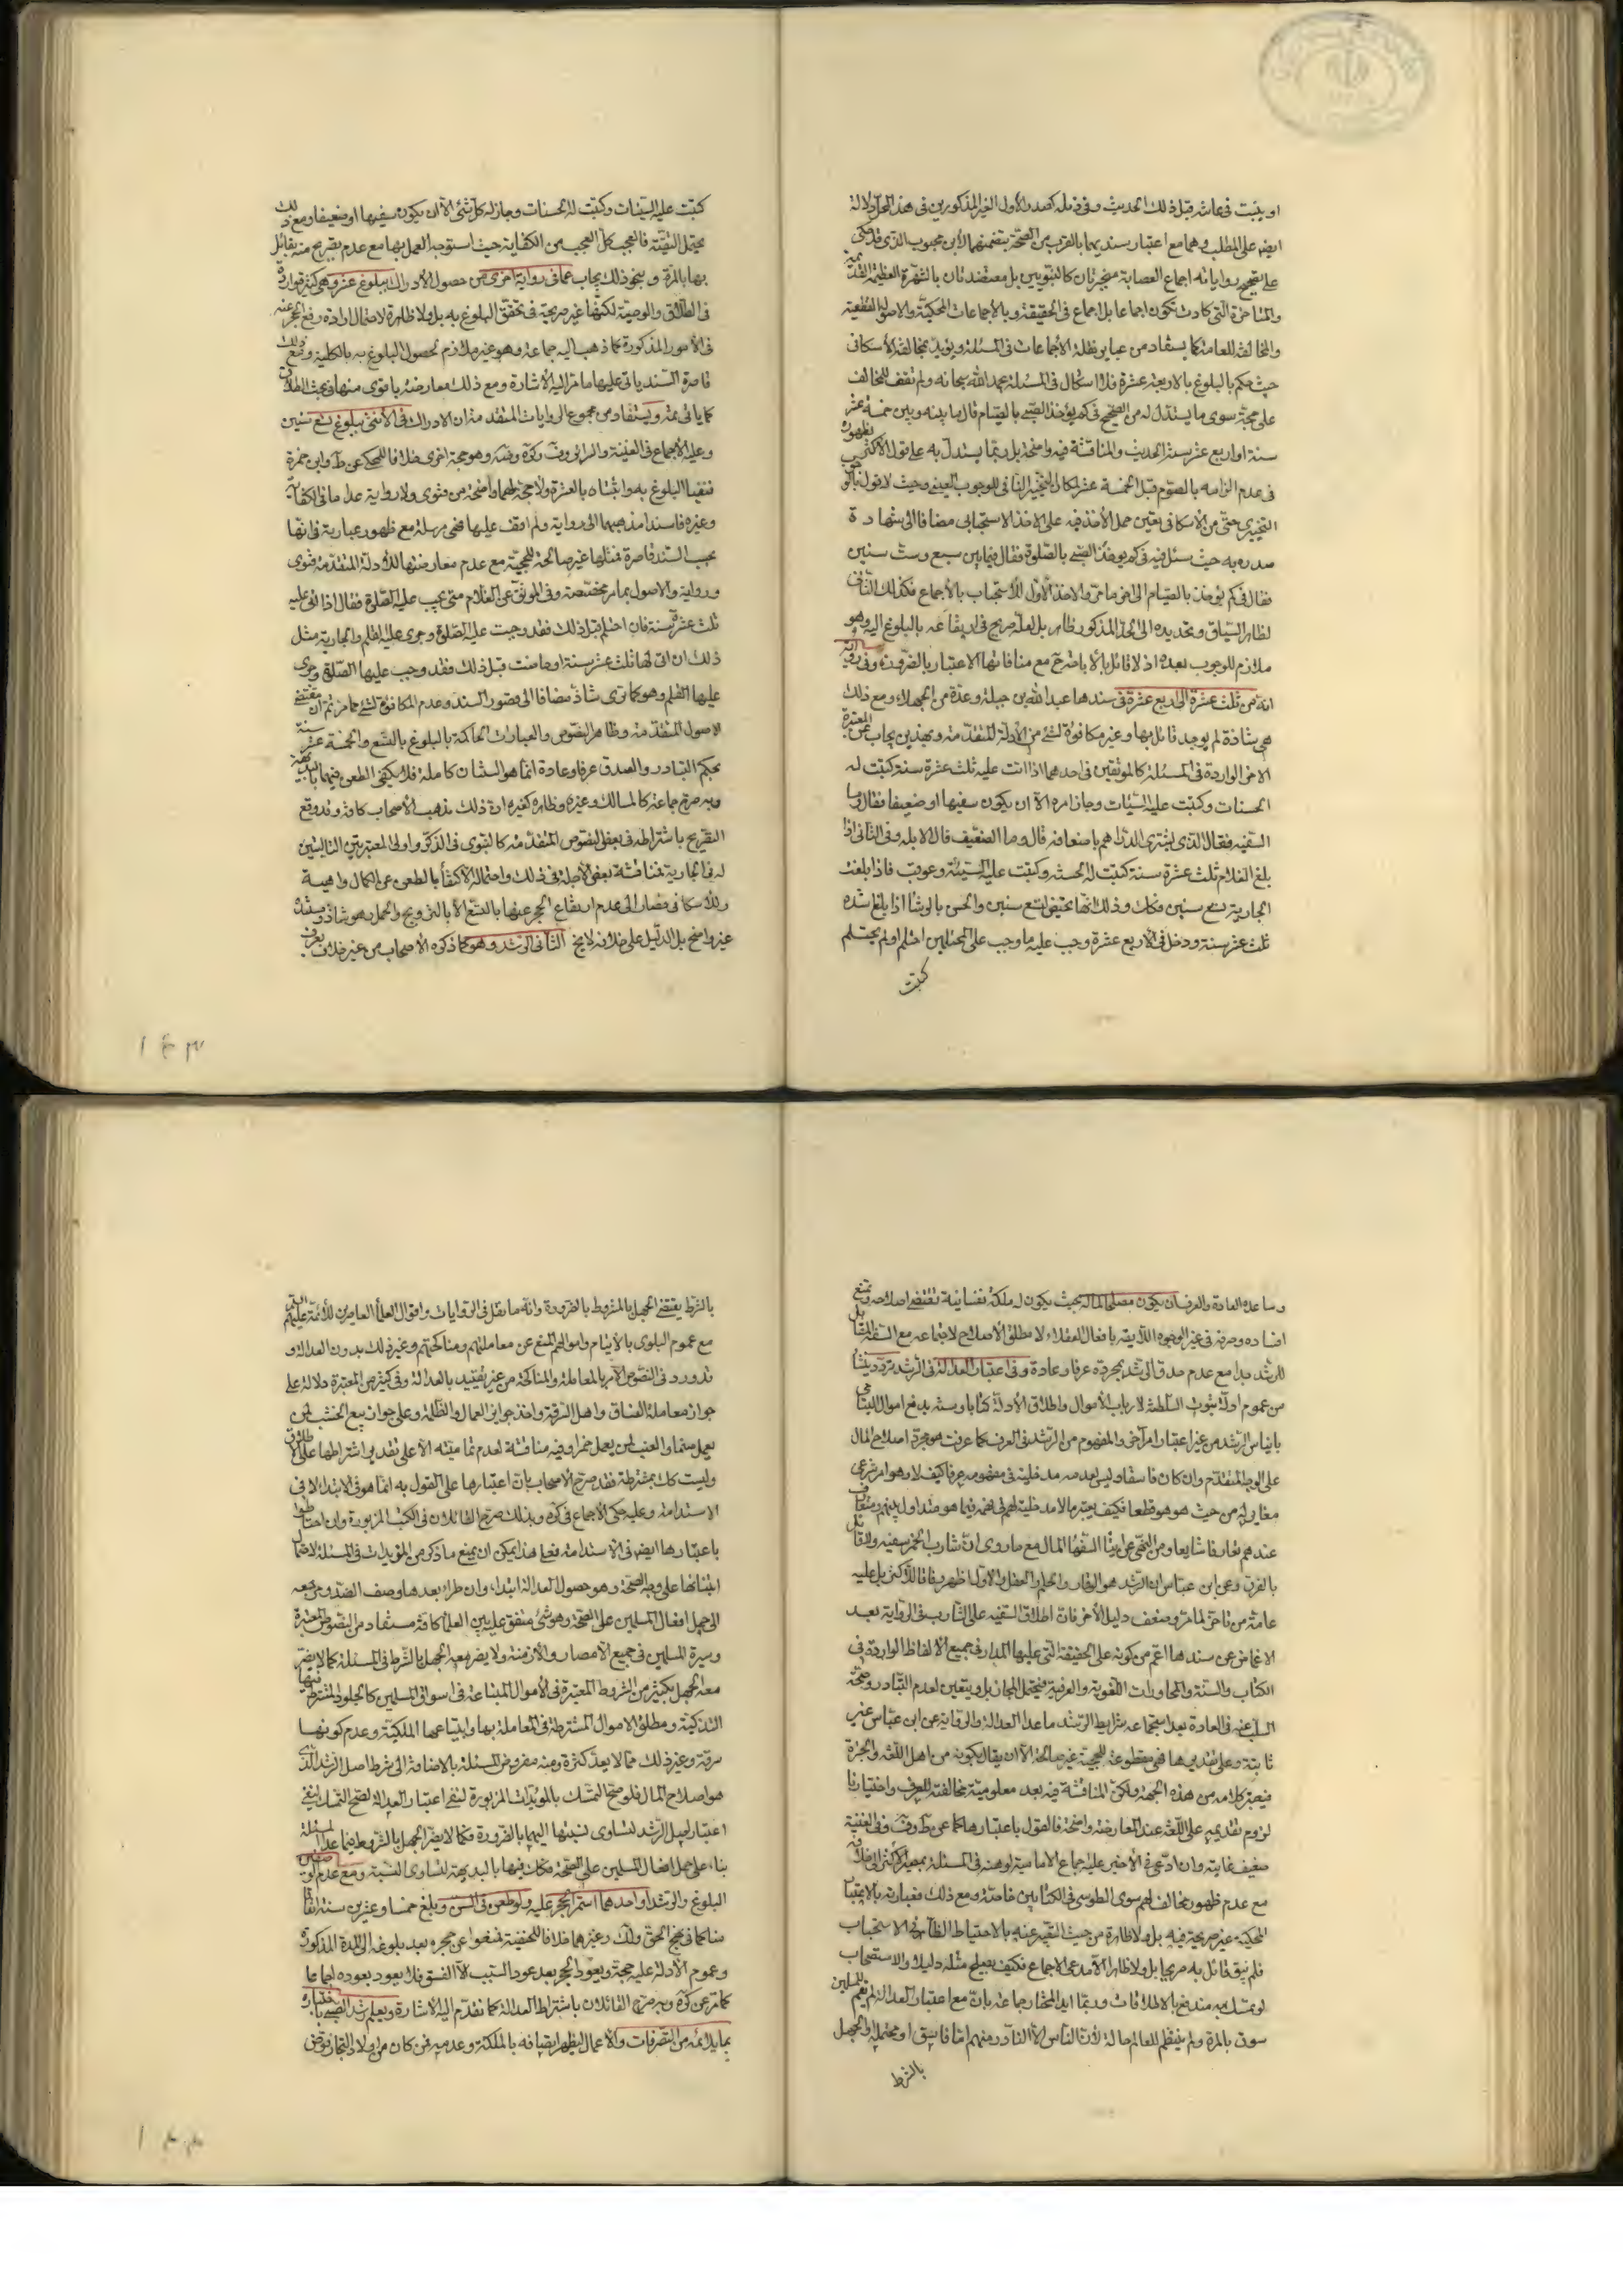 او ينبت في عانته قبل ذلك الحديث وفي ذيله كصدر الأول الغير المذكورين في هذا المحل دلالة
ايض على المطلب وهما مع اعتبار سنديهما بالقرب من الصحة بتضمنهما لابن محبوب الذي قد حكى
على تصحيح رواياته اجماع العصابة منجبرتان كالنبويين بل معتضدتان بالشهرة العظيمة القديمة
والمتأخرة التي كادت تكون اجماعا بل اجماع في الحقيقة وبالاجماعات المحكية والاصول القطعية
والمخالفة للعامة كما يستفاد من عباير نقلة الاجماعات في المسئلة ويؤيده مخالفة الاسكافي
حيث حكم بالبلوغ بالاربعة عشرة فلا اشكال في المسئلة بحمد الله سبحانه ولم نقف للمخالف
على حجة سوى ما يستدل له من الصحيح في كم يؤخذ الصبي بالصيام قال ما بينه وبين خمسة عشر
سنة او اربع عشر سنة الحديث والمناقشة فيه واضحة بل ربما يستدل به على قول الاكثر لظهوره
في عدم الزامه بالصوم قبل الخمسة عشر لمكان التخيير المنافي للوجوب العيني وحيث لا قول بالوجوب
التخييري حتى من الاسكافي تعين حمل الاخذ فيه على الاخذ الاستحبابي مضافا الى شهادة
صدره به حيث سئل فيه في كم يؤخذ الصبي بالصلوة فقال فيما بين سبع وست سنين
فقال في كم يؤخذ بالصيام الى اخر ما مر والاخذ الأول للاستحباب بالاجماع فكذلك الثاني
لظاهر السياق وتحديده الى الحد المذكور ظاهر بل لعله صريح في ارتفاعه بالبلوغ اليه وهو
ملازم للوجوب بعده اذ لا قائل بالاباحة مع منافاتها الاعتبار بالضرورة وفي رواية
انه من ثلث عشرة الى اربع عشرة في سندها عبد الله بن جبلة وعدة من الجهلاء ومع ذلك
هي شاذة لم يوجد قائل بها وغير مكافؤة لشئ من الأدلة المتقدمة وبهذين يجاب عن المعتبرة
الاخر الواردة في المسئلة كالموثقين في احدهما اذا اتت عليه ثلث عشرة سنة كتبت له
الحسنات وكتبت عليه السيئات وجاز امره الا ان يكون سفيها او ضعيفا فقال وما
السفيه فقال الذي يشتري الدراهم باضعافه قال وما الضعيف قال الابله وفي الثاني اذا
بلغ الغلام ثلث عشرة سنة كتبت له الحسنة وكتبت عليه السيئة وعوقب فاذا بلغت
الجارية تسع سنين فكك وذلك انها تحيض لتسع سنين والحسن بالوشا اذا بلغ اشده
ثلث عشر سنة ودخل في الاربع عشرة وجب عليه ما وجب على المحتلمين احتلم او لم يحتلم
كتبت
كتبت عليه السيئات وكتبت له الحسنات وجاز له كل شئ الا ان يكون سفيها او ضعيفا ومع ذلك
يحتمل التقية فالعجب كل العجب من الكفاية حيث استوجه العمل بها مع عدم تصريح منه بقائل
بها بالمرة و بنحو ذلك يجاب عما في رواية اخرى من حصول الادراك ببلوغ عشر وهي كثيرة واردة
في الطلاق والوصية لكنها غير صريحة في تحقق البلوغ به بل ولا ظاهرة لاحتمال ارادة رفع الحجر عنه
في الأمور المذكورة كما ذهب اليه جماعة وهو غير ملازم لحصول البلوغ به بالكلية ومع ذلك
قاصرة السند ياتي عليها ما مر اليه الاشارة ومع ذلك معارضة باقوى منها في بحث الطلاق
كما ياتي ثمة ويستفاد من مجموع الروايات المتقدمة ان الادراك في الأنثى ببلوغ تسع سنين
وعليه الاجماع في الغنية والسرائر وف وكرة وضه وهو حجة اخرى خلافا للمحكي عن ط وابن حمزة
فنفيا البلوغ به واثبتاه بالعشرة ولا حجة لهما واضحة من فتوى ولا رواية عدا ما في الكفاية
وغيره فاسندا مذهبهما الى رواية ولم اقف عليها فهي مرسلة مع ظهور عبارته في انها
بحسب السند قاصرة فمثلها غير صالحة للحجية مع عدم معارضتها للأدلة المتقدمة فتوى
ورواية والاصول بما مر مخصصة وفي الموثق عن الغلام متى يجب عليه الصلوة فقال اذا اتى عليه
ثلث عشرة سنة فان احتلم قبل ذلك فقد وجبت عليه الصلوة وجرى عليه القلم والجارية مثل
ذلك ان اتى لها ثلث عشر سنة او حاضت قبل ذلك فقد وجب عليها الصلوة وجرى
عليها القلم وهو كما ترى شاذ مضافا الى قصور السند وعدم المكافؤة لشئ مما مر ثم ان مقتضى
الاصول المتقدمة وظاهر النصوص والعبارات الحاكمة بالبلوغ بالتسع والخمسة عشر سنة
بحكم التبادر والصدق عرفا وعادة انما هو السنتان كاملة فلا يكفي الطعن فيهما بالبديهة
وبه صرح جماعة كالمسالك وغيره وظاهره كغيره ان ذلك مذهب الأصحاب كافة وقد وقع
التصريح باشتراطه في بعض النصوص المتقدمة كالنبوي في الذكر واولى المعتبرتين التاليتين
له في الجارية فمناقشة بعض الأجلة في ذلك واحتماله الاكتفأ بالطعن عن الكمال واهية
وللأسكافي فصار الى عدم ارتفاع الحجر عنها بالتسع الا بالتزويج والحمل وهو شاذ ومستنده
غير واضح بل الدليل على خلافه لايح الثاني الرشد وهو كما ذكره الأصحاب من غير خلاف يعرف
۱۴۳
وساعده العادة والعرف ان يكون مصلحا لماله بحيث يكون له ملكة نفسانية تقتضي اصلاحه وتمنع
افساده وصرفه في غير الوجوه اللايقة بافعال العقلاء لا مطلق الأصلاح لاجتماعه مع السفه المقابل
للرشد جدا مع عدم صدق الرشد بمجرده عرفا وعادة وفي اعتبار العدالة في الرشد تردد ينشأ
من عموم ادلة ثبوت السلطنة لارباب الأموال واطلاق الأدلة كتابا وسنة بدفع اموال اليتامى
بايناس الرشد من غير اعتبار امر آخر والمفهوم من الرشد في العرف كما عرفت هو مجرد اصلاح المال
على الوجه المتقدم وان كان فاسقا وليس لعدمه مدخلية في مفهومه عرفا كيف لا وهو امر شرعي
مغاير له من حيث هو هو قطعا فكيف يعتبر ما لا مدخلية لهم في فهمه فيما هو متداول بينهم ومتعارف
عندهم تعارفا شايعا ومن النهي عن ايتأ السفهأ المال مع ما روى ان شارب الخمر سفيه ولا قائل
بالفرق وعن ابن عباس ان الرشد هو الوقار والحلم والعقل والأول اظهر وفاقا للأكثر بل عليه
عامة من تاخر لما مر وضعف دليل الأخر فان اطلاق السفيه على الشارب في الرواية بعد
الاغماض عن سندها اعم من كونه على الحقيقة التي عليها المدار في جميع الالفاظ الواردة في
الكتاب والسنة والمحاورات اللغوية والعرفية فيحتمل المجاز بل ويتعين لعدم التبادر وصحة
السلب عنه في العادة بعد استجماعه شرايط الرشد ما عدا العدالة والرواية عن ابن عباس غير
ثابتة وعلى تقديرها فهي مقطوعة للحجية غير صالحة الا ان يقال بكونه من اهل اللغة والخبرة
فيعتبر كلامه من هذه الجهة ولكن المناقشة فيه بعد معلومية مخالفته للعرف واختيارنا
لزوم تقديمه على اللغة عند المعارضة واضحة فالقول باعتبارها كما عن ط وف وفي الغنية
ضعيف غايته وان ادعى في الأخير عليه اجماع الامامية لوهنه في المسئلة بمصير الأكثر الى خلافه
مع عدم ظهور مخالف لهم سوى الطوسي في الكتابين خاصة ومع ذلك فعبارته بالاعتبار
المحكية غير صريحة فيه بل ولا ظاهرة من حيث التعبير عنه بالاحتياط الظاهر في الاستحباب
فلم نبق قائل به صريحا بل ولا ظاهرا الا مدعي الاجماع فكيف يصلح مثله دليلا والاستصحاب
لو تمسك به مندفع بالاطلاقات وربما ايد المختار جماعة بان مع اعتبار العدالة لم يقم للمسلمين
سوق بالمرة ولم ينتظم للعالم حالة لأن الناس الا النادر منهم اما فاسق او محتمله والجهل
بالشرط
بالشرط يقتضي الجهل بالمشروط بالضرورة وانه ما نقل في الروايات واقوال العلمأ المعاصرين للأئمة عليهم السلام
مع عموم البلوى بالايتام واموالهم المنع عن معاملتهم ومناكحتهم وغير ذلك بدون العدالة و
قد ورد في النصوص الأمر بالمعاملة والمناكحة من غير تقييد بالعدالة وفي كثير من المعتبرة دلالة على
جواز معاملة الفساق واهل السرقة واخذ جوايز العمال والظلمة وعلى جواز بيع الخشب لمن
يعمل صنما والعنب لمن يعمل خمرا وفيه مناقشة لعدم تماميته الا على تقدير اشتراطها على الاطلاق
وليست كك بمشترطة فقد صرح الأصحاب بان اعتبارها على القول به انما هو في الابتداء لا في
الاستدامة وعليه حكى الأجماع في كره وبذلك صرح القائلان في الكتب المزبورة وان احتاطوا
باعتبارها ايض في الاستدامة فعلى هذا يمكن ان يمنع ما ذكر من المؤيدات في المسئلة لاحتمال
ابتنائها على وجه الصحة وهو حصول العدالة ابتداء وان طرأ بعدها وصف الضد ومرجعه
الى حمل افعال المسلمين على الصحة وهو شئ متفق عليه بين العلمأ كافة مستفاد من النصوص المعتبرة
وسيرة المسلمين في جميع الأمصار والأزمنة ولا يضر معه الجهل بالشرط في المسئلة كما لا يضر
معه الجهل بكثير من الشروط المعتبرة في الأموال المبتاعة في اسواق المسلمين كالجلود المشترط فيها
التذكية ومطلق الاموال المشترطة في المعاملة بها وابتياعها الملكية وعدم كونها
سرقة وغير ذلك مما لا يعد كثرة ومنه مفروض المسئلة بالاضافة الى شرط اصل الرشد الذي
هو اصلاح المال فلو صح التمسك بالمؤيدات المزبورة لنفي اعتبار العدالة لصح التمسك لنفي
اعتبار اصل الرشد لتساوى نسبتها اليهما بالضرورة فكما لا يضر الجهل بالشروط فيما عدا المسئلة
بناء على حمل افعال المسلمين على الصحة فكك فيها بالبديهة لتساوى النسبة ومع عدم الوصفين
البلوغ والرشد او احدهما استمر الحجر عليه ولو طعن في السن وبلغ خمسا وعشرين سنة اتفاقا
منا كما في نهج الحق ولك وغيرهما خلافا للحنفية فمنعوا عن حجره بعد بلوغه الى المدة المذكورة
وعموم الأدلة عليه حجة ويعود الحجر بعد عود السبب الا الفسق فلا يعود بعوده اجماعا
كما مر عن كره وبه صرح القائلان باشتراط العدالة كما تقدم اليه الاشارة ويعلم رشد الصبي باختباره
بما يلائمه من التصرفات والأعمال ليظهر اتصافه بالملكة وعدمه فمن كان من اولاد التجار فوض
۱۴۴